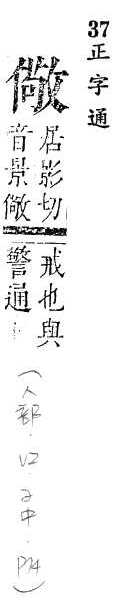 37正字通
儆
居影切
音景儆
戒也與
警通
(人部.V2.子中.P74)